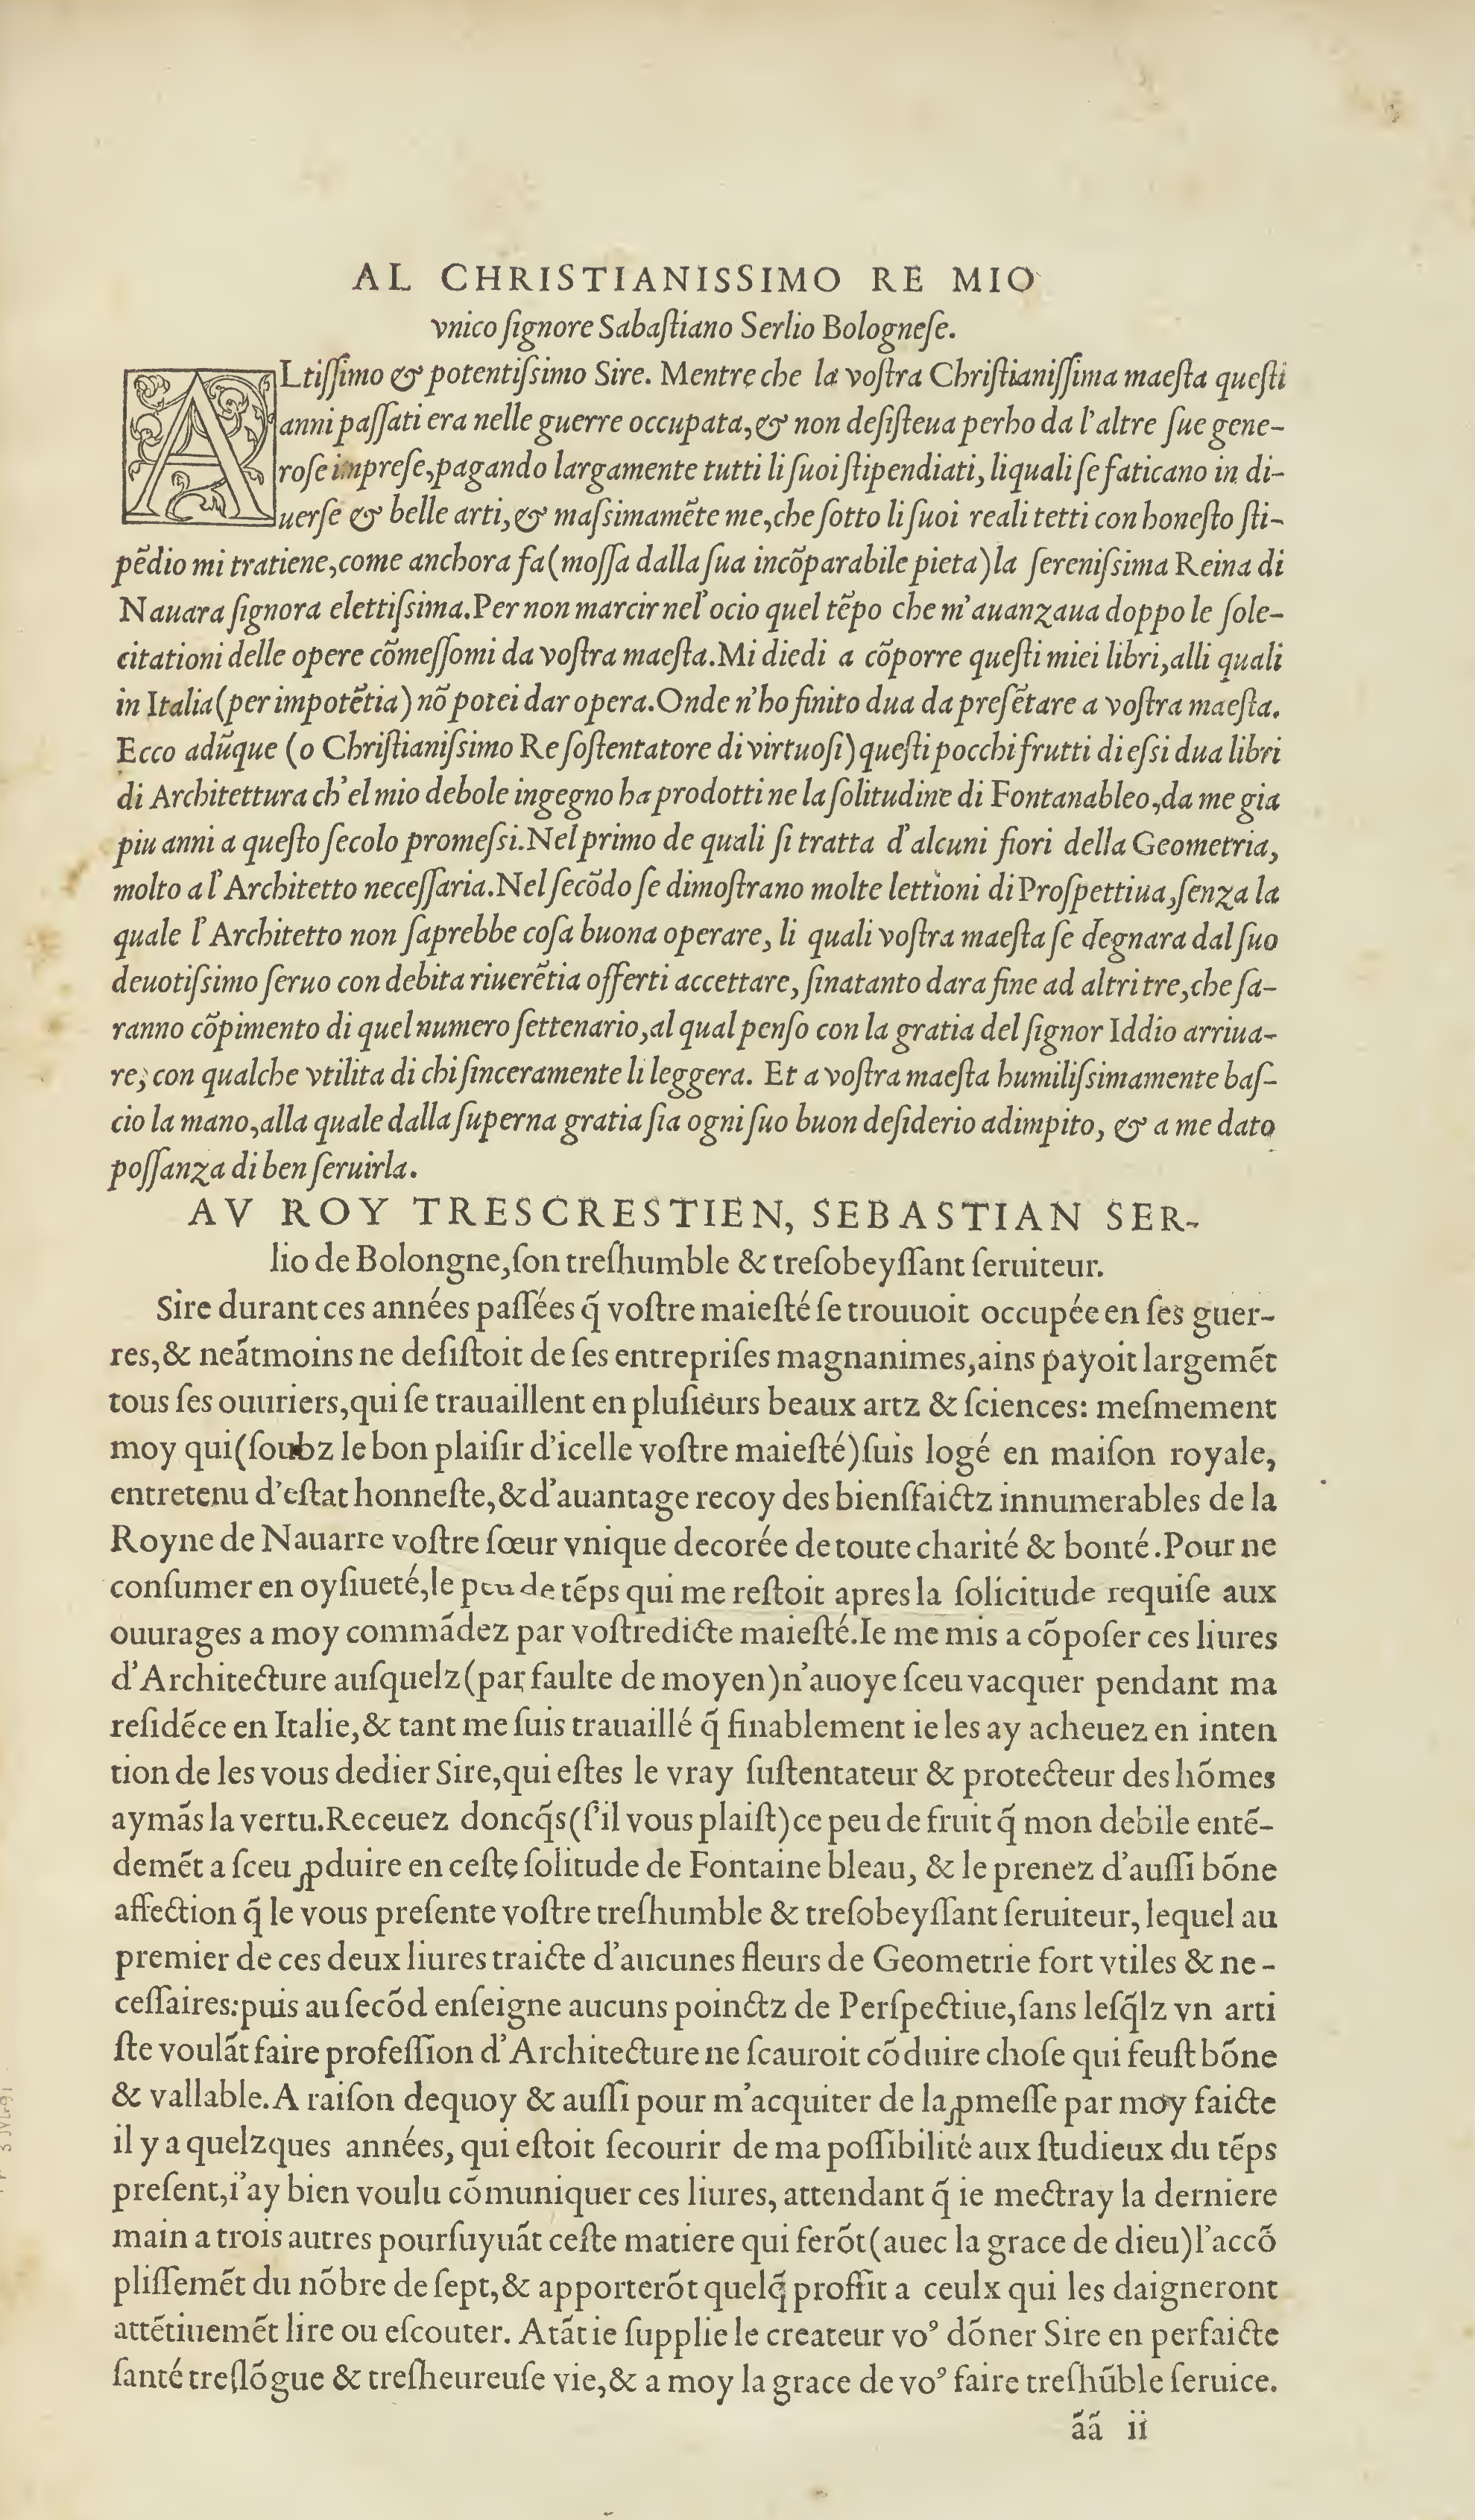 AL CHRISTIANISSIMO RE MIO
vnico ſignore Sabaſtiano Serlio Bologneſe.
ALtiſſimo & potentiſsimo Sire. Mentre che la voſtra Chriſtianiſſima maeſta queſti
anni paſſati era nelle guerre occupata,& non deſiſteua perho da l'altre ſue gene-
roſe impreſe,pagando largamente tutti li ſuoi ſtipendiati, liquali ſe faticano in di-
uerſe & belle arti,& maſsimamẽte me,che ſotto li ſuoi reali tetti con honeſto ſti-
pẽdio mi tratiene,come anchora fa(moſſa dalla ſua incõparabile pieta)la ſereniſsima Reina di
Nauara ſignora elettiſsima.Per non marcir nel'ocio quel tẽpo che m'auanzaua doppo le ſole-
citationi delle opere cõmeſſomi da voſtra maeſta.Mi diedi a cõporre queſti miei libri,alli quali
in Italia(per impotẽtia)nõ potei dar opera.Onde n'ho finito dua da preſẽtare a voſtra maeſta.
Ecco adũque (o Chriſtianiſsimo Re ſoſtentatore di virtuoſi)queſti pocchi frutti di eſsi dua libri
di Architettura ch'el mio debole ingegno ha prodotti ne la ſolitudine di Fontanableo,da me gia
piu anni a queſto ſecolo promeſsi.Nel primo de quali ſi tratta d'alcuni fiori della Geometria,
molto a l'Architetto neceſſaria.Nel ſecõdo ſe dimoſtrano molte lettioni di Proſpettiua,ſenza la
quale l'Architetto non ſaprebbe coſa buona operare, li quali voſtra maeſta ſe degnara dal ſuo
deuotiſsimo ſeruo con debita riuerẽtia offerti accettare, ſinatanto dara fine ad altri tre,che ſa-
ranno cõpimento di quel numero ſettenario,al qual penſo con la gratia del ſignor Iddio arriua-
re, con qualche vtilita di chi ſinceramente li leggera. Et a voſtra maeſta humiliſsimamente baſ-
cio la mano,alla quale dalla ſuperna gratia ſia ogni ſuo buon deſiderio adimpito, & a me dato
poſſanza di ben ſeruirla.
AV ROY TRESCRESTIEN, SEBASTIAN SER-
lio de Bolongne,ſon treſhumble & treſobeyſſant ſeruiteur.
Sire durant ces années paſſées q̃ voſtre maieſté ſe trouuoit occupée en ſes guer-
res,& neãtmoins ne deſiſtoit de ſes entrepriſes magnanimes,ains payoit largemẽt
tous ſes ouuriers,qui ſe trauaillent en pluſieurs beaux artz & ſciences: meſmement
moy qui(ſoubz le bon plaiſir d'icelle voſtre maieſté)ſuis logé en maiſon royale,
entretenu d'eſtat honneſte,& d'auantage recoy des bienſfaictz innumerables de la
Royne de Nauarre voſtre ſœur vnique decorée de toute charité & bonté.Pour ne
conſumer en oyſiueté,le peu de tẽps qui me reſtoit apres la ſolicitude requiſe aux
ouurages a moy commãdez par voſtredicte maieſté.Ie me mis a cõpoſer ces liures
d'Architecture auſquelz(par faulte de moyen)n'auoye ſceu vacquer pendant ma
reſidẽce en Italie,& tant me ſuis trauaillé q̃ finablement ie les ay acheuez en inten
tion de les vous dedier Sire,qui eſtes le vray ſuſtentateur & protecteur des hõmes
aymãs la vertu.Receuez doncq̃s(ſ'il vous plaiſt)ce peu de fruit q̃ mon debile entẽ-
demẽt a ſceu ꝓduire en ceſte ſolitude de Fontaine bleau, & le prenez d'auſſi bõne
affection q̃ le vous preſente voſtre treſhumble & treſobeyſſant ſeruiteur, lequel au
premier de ces deux liures traicte d'aucunes fleurs de Geometrie fort vtiles & ne-
ceſſaires:puis au ſecõd enſeigne aucuns poinctz de Perſpectiue,ſans leſq̃lz vn arti
ſte voulãt faire profeſſion d'Architecture ne ſcauroit cõduire choſe qui feuſt bõne
& vallable.A raiſon dequoy & auſſi pour m'acquiter de la ꝓmeſſe par moy faicte
il y a quelzques années, qui eſtoit ſecourir de ma poſſibilité aux ſtudieux du tẽps
preſent,i'ay bien voulu cõmuniquer ces liures, attendant q̃ ie mectray la derniere
main a trois autres pourſuyuãt ceſte matiere qui ferõt(auec la grace de dieu)l'accõ
pliſſemẽt du nõbre de ſept,& apporterõt quelq̃ proffit a ceulx qui les daigneront
attẽtiuemẽt lire ou eſcouter. Atãt ie ſupplie le createur voꝰ dõner Sire en perfaicte
ſanté treſlõgue & treſheureuſe vie,& a moy la grace de voꝰ faire treſhũble ſeruice.
ãã ii